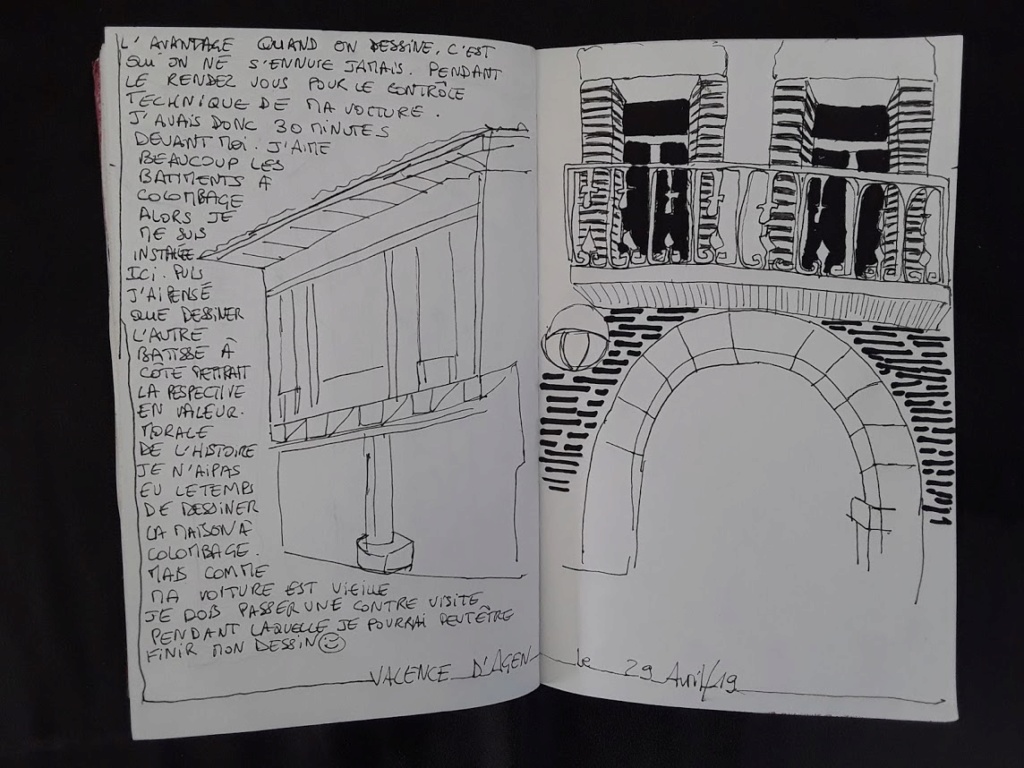 L'AVANTAGE QUAND ON DESSINE, C'EST
QU'ON NE S'ENNUIE JAMAIS. PENDANT
LE RENDEZ VOUS POUR LE CONTRÔLE
TECHNIQUE DE MA VOITURE.
J'AVAIS DONC 30 MINUTES
DEVANT MOI. J'AIME
BEAUCOUP LES
BATIMENTS À
COLOMBAGE
ALORS JE
ME SUIS
INSTALÉE
ICI. PUIS
J'AI PENSÉ
QUE DESSINER
L'AUTRE
BATISSE À
COTÉ METTRAIT
LA PESPECTIVE
EN VALEUR.
MORALE
DE L'HISTOIRE
JE N'AI PAS
EU LE TEMPS
DE DESSINER
LA MAISON À
COLOMBAGE.
MAIS COMME
MA VOITURE EST VIEILLE
JE DOIS PASSER UNE CONTRE VISITE
PENDANT LAQUELLE JE POURRAI PEUT ÊTRE
FINIR MON DESSIN
VALENCE D'AGEN le 29 Avril/19